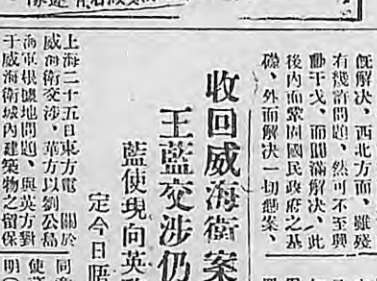 既解決、西北方面、雖發
有幾許問題、然可不至興
動干戈、而圓滿解決、此
後內而鞏固國民政府之基
礎、外而解決一切懸案、
收回威海衛案
王藍交涉仍
藍使現向英政
定今日晤
上海二十五日東方電 關於
威海衛交涉、華方以劉公島
海軍根據地問題、與英方對
于威海衛城內建築物之留保
同意
使
明(